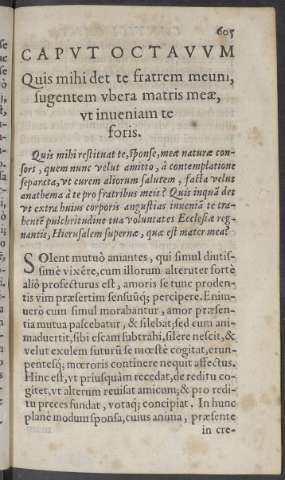 605
CAPVT OCTAVVM
Quis mihi det te fratrem meum,
sugentem vbera matris meæ,
vt inueniam te
foris.
Quis mihi restituat te, sponse, meæ naturæ con-
sors, quem nunc velut amitto, à contemplatione
separata, vt curem aliorum salutem, facta velut
anathema à te pro fratribus meis? Quis inquā det
vt extra huius corporis angustias inueniā te tra-
hente pulchritudine tua voluntates Ecclesiæ reg-
nantis, Hierusalem supernæ, quæ est mater mea?
SOlent mutuò amantes, qui simul diutis-
simè vixêre, cum illorum alteruter fortè
aliò profecturus est, amoris se tunc pruden-
tis vim præsertim sensuūq; percipere. Enim-
uerò cum simul morabantur, amor præsen-
tia mutua pascebatur, & silebat, sed cum ani-
maduertit, sibi escam subtrahi, silere nescit, &
velut exulem futurū se mœstè cogitat, erum-
pentesq; mœroris continere nequit affectus.
Hinc est, vt priusquàm recedat, de reditu co-
gitet, vt alterum reuisat amicum, & pro redi-
tu preces fundat, votaq; concipiat. In hunc
planè modum sponsa, cuius anima, præsente
in cre-